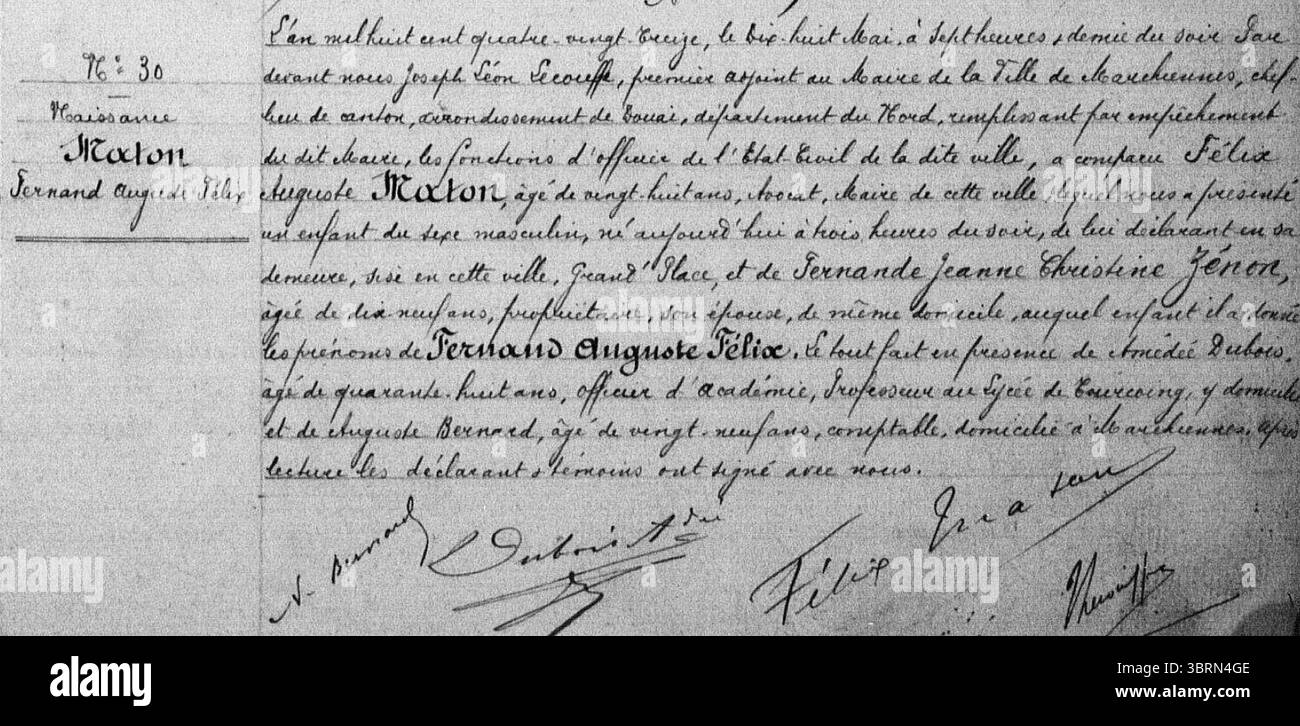 N° 30
Naissance
Maton
Fernand Auguste Félix
L'an mil huit cent quatre-vingt-treize, le Dix-huit Mai, à Sept heures & demie du soir Par
devant nous Joseph Léon Lecouffe, premier adjoint au Maire de la Ville de Marchiennes, chef-
lieu de canton, arrondissement de Douai, département du Nord, remplissant par empêchement
du dit Maire, les fonctions d'officier de l'Etat-Civil de la dite ville, a comparu Félix
Auguste Maton, âgé de vingt-huit ans, Avocat, Maire de cette ville, lequel nous a présenté
un enfant du sexe masculin, né aujourd'hui à trois heures du soir, de lui déclarant en sa
demeure, sise en cette ville, Grand' Place, et de Fernande Jeanne Christine Zénon,
âgée de dix neuf ans, propriétaire, son épouse, de même domicile, auquel enfant il a donné
les prénoms de Fernand Auguste Félix. Le tout fait en présence de Amédée Dubois,
âgé de quarante-huit ans, officier d'Académie, Professeur au Lycée de Tourcoing, y domicilié
et de Auguste Bernard, âgé de vingt-neuf ans, comptable, domicilié à Marchiennes. Après
lecture les déclarant & témoins ont signé avec nous.
A. Bernard Dubois A^dée Félix Maton
alamy
Image ID: 3BRN4GE
www.alamy.com